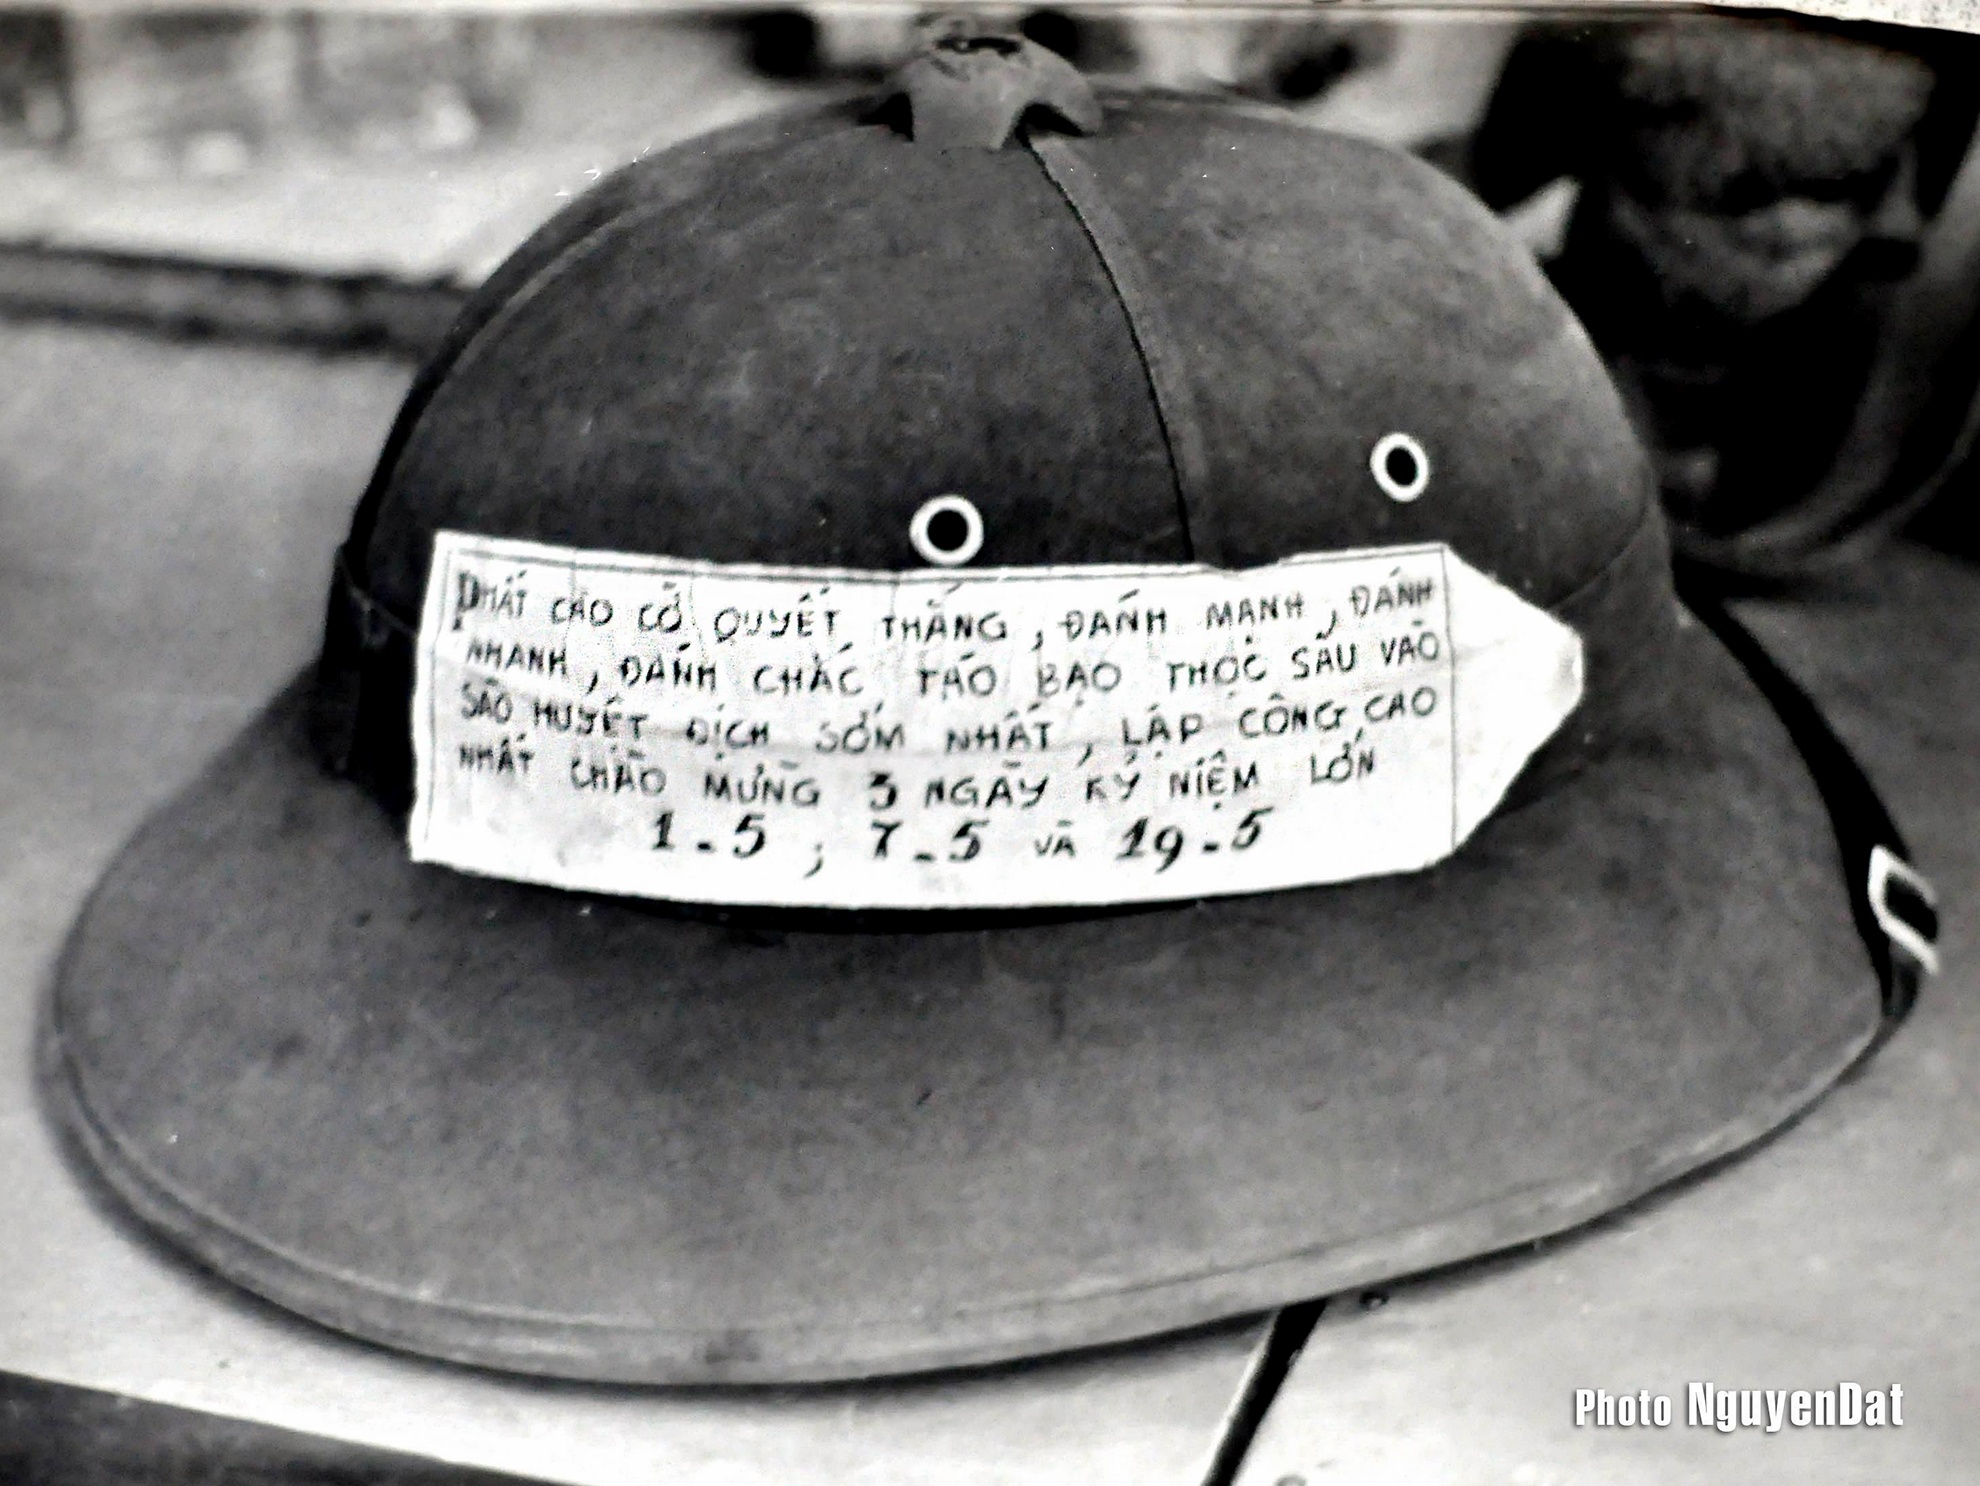 PHẤT CAO CỜ QUYẾT THẮNG, ĐÁNH MẠNH, ĐÁNH
NHANH, ĐÁNH CHẮC, TÁO BẠO THỌC SÂU VÀO
SÀO HUYỆT ĐỊCH SỚM NHẤT, LẬP CÔNG CAO
NHẤT CHÀO MỪNG 3 NGÀY KỶ NIỆM LỚN
1-5; 7-5 VÀ 19-5
Photo NguyenDat